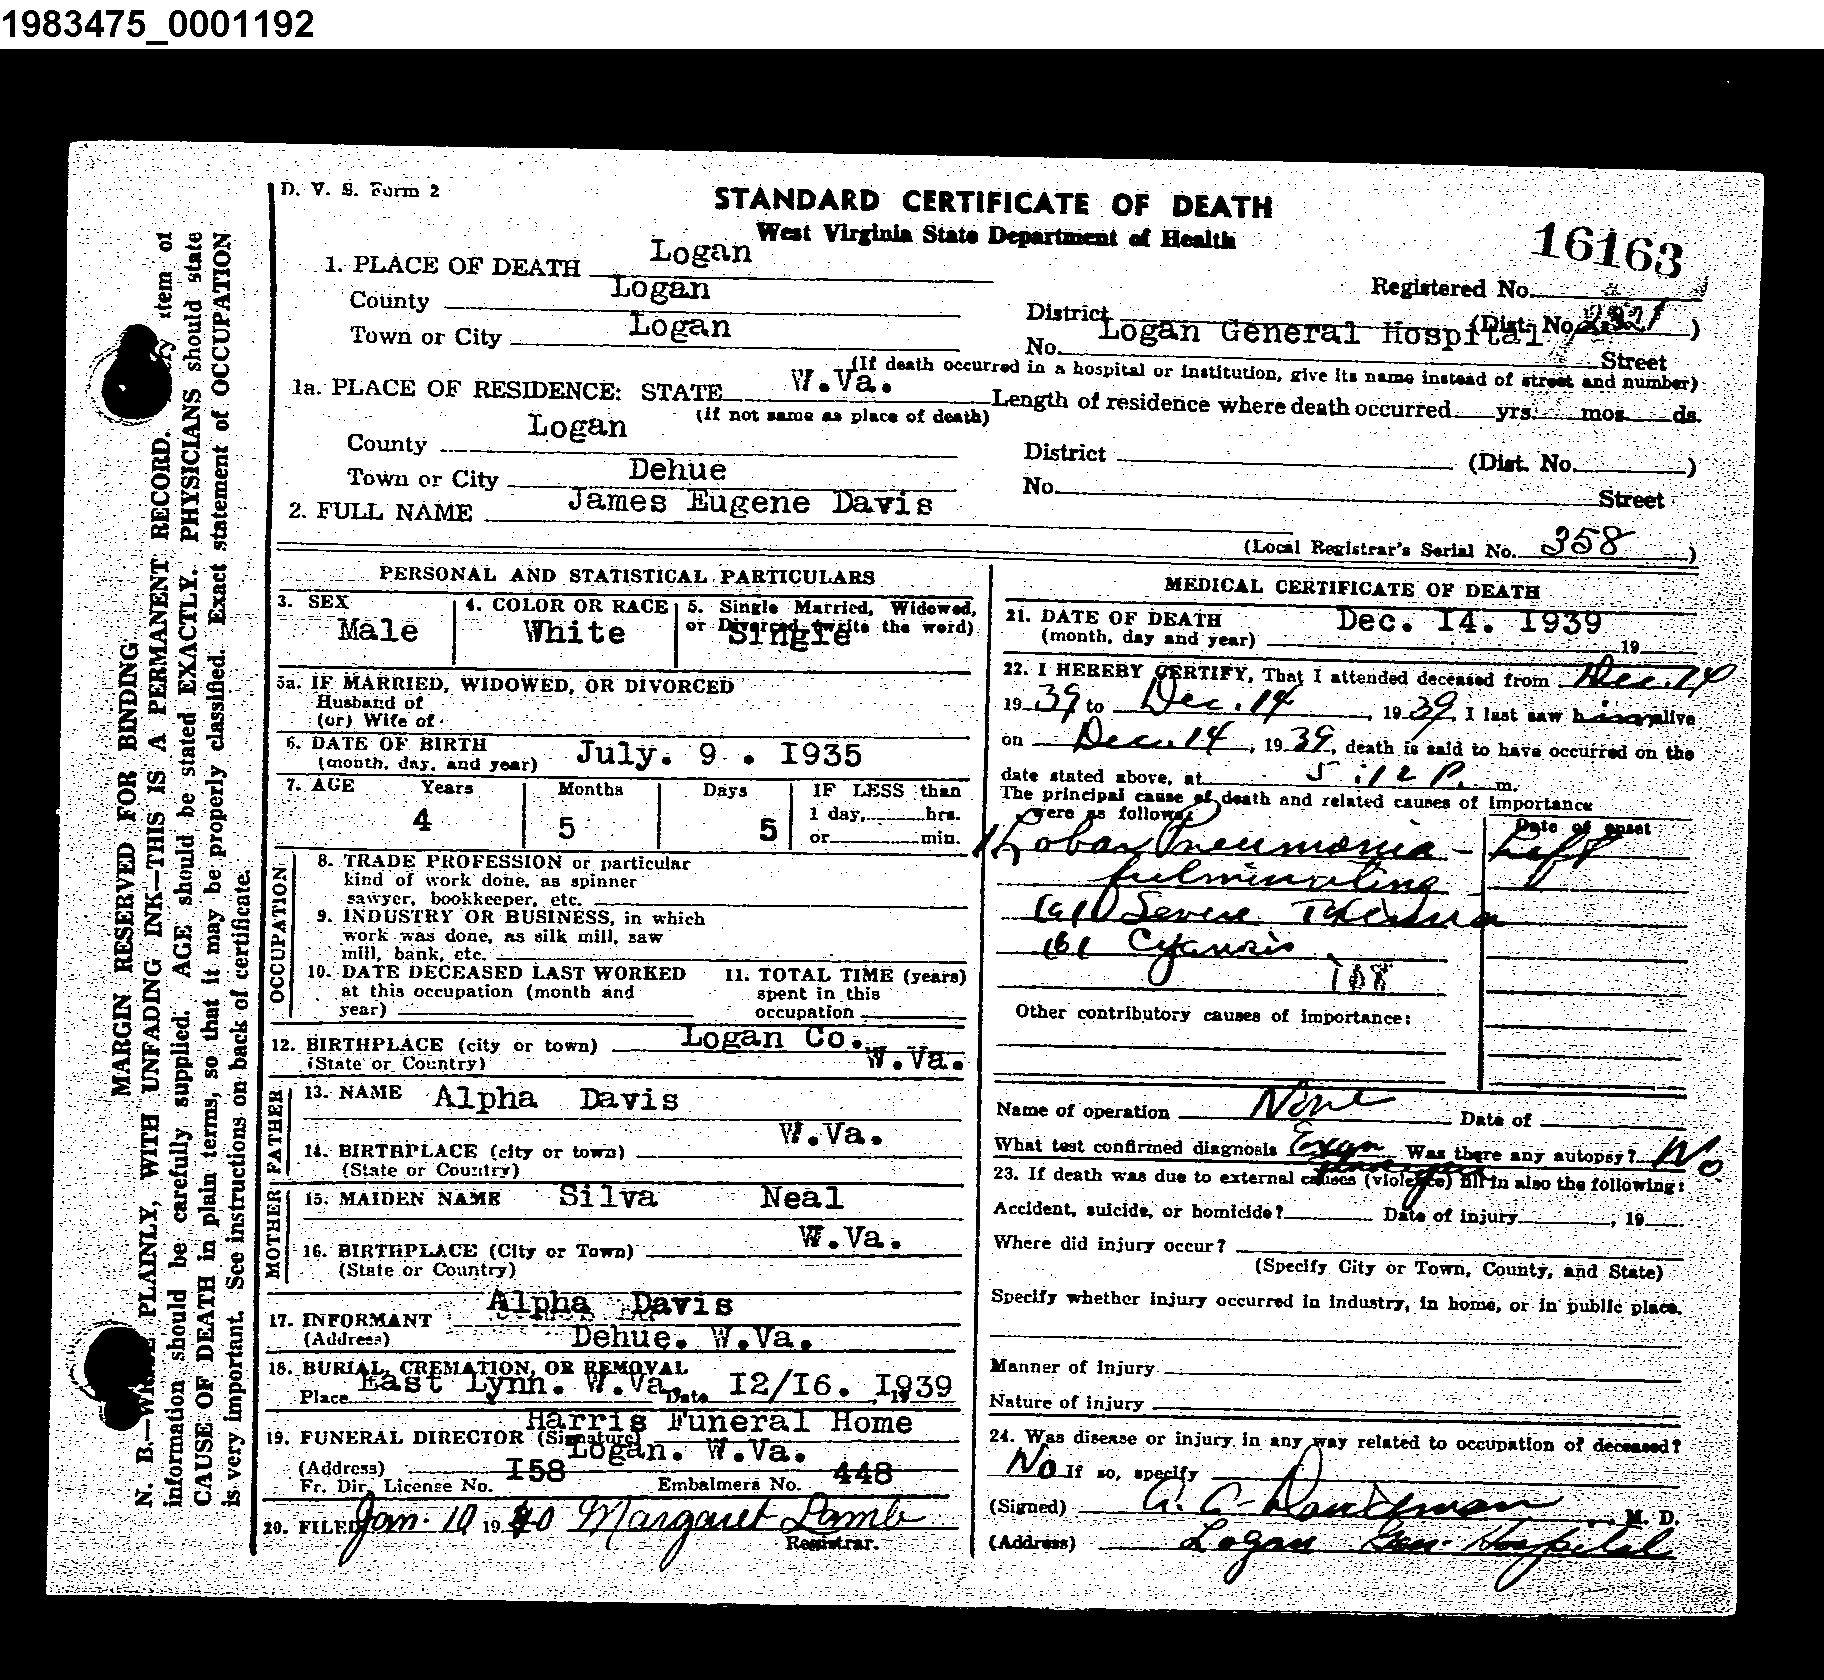 1983475_0001192
D. V. S. Form 2
STANDARD CERTIFICATE OF DEATH
West Virginia State Department of Health
16163
1. PLACE OF DEATH Logan
Registered No.
County Logan
District (Dist. No. )
Town or City Logan
No. Logan General Hospital Street
(If death occurred in a hospital or institution, give its name instead of street and number)
1a. PLACE OF RESIDENCE: STATE W.Va.
(If not same as place of death)
Length of residence where death occurred yrs. mos. ds.
County Logan
District (Dist. No. )
Town or City Dehue
No. Street
2. FULL NAME James Eugene Davis
(Local Registrar's Serial No. 358 )
PERSONAL AND STATISTICAL PARTICULARS
3. SEX
Male
4. COLOR OR RACE
White
5. Single Married, Widowed,
or Divorced (write the word)
Single
5a. IF MARRIED, WIDOWED, OR DIVORCED
Husband of
(or) Wife of
6. DATE OF BIRTH
(month, day, and year) July. 9 . I935
7. AGE Years Months Days IF LESS than
1 day, hrs.
or min.
4 5 5
OCCUPATION
8. TRADE PROFESSION or particular
kind of work done, as spinner
sawyer, bookkeeper, etc.
9. INDUSTRY OR BUSINESS, in which
work was done, as silk mill, saw
mill, bank, etc.
10. DATE DECEASED LAST WORKED
at this occupation (month and
year)
11. TOTAL TIME (years)
spent in this
occupation
12. BIRTHPLACE (city or town) Logan Co.
(State or Country) W.Va.
FATHER
13. NAME Alpha Davis
14. BIRTHPLACE (city or town) W.Va.
(State or Country)
MOTHER
15. MAIDEN NAME Silva Neal
16. BIRTHPLACE (City or Town) W.Va.
(State or Country)
17. INFORMANT Alpha Davis
(Address) Dehue. W.Va.
18. BURIAL, CREMATION, OR REMOVAL
Place East Lynn. W.Va. Date I2/I6. I939
19. FUNERAL DIRECTOR (Signature) Harris Funeral Home
(Address) Logan. W.Va.
Fr. Dir. License No. I58 Embalmers No. 448
20. FILED Jan. 10 1940 Margaret Lamb
Registrar.
MEDICAL CERTIFICATE OF DEATH
21. DATE OF DEATH Dec. I4. I939
(month, day and year) 19
22. I HEREBY CERTIFY, That I attended deceased from Dec. 14
19 39 to Dec. 14, 19 39, I last saw him alive
on Dec. 14, 19 39, death is said to have occurred on the
date stated above, at 5:12 P. m.
The principal cause of death and related causes of importance
were as follows:
Date of onset
1 Lobar Pneumonia - Left
fulminating
(a) Severe Toxemia
(b) Cyanosis
108
Other contributory causes of importance:
Name of operation None Date of
What test confirmed diagnosis Exam Was there any autopsy? No
23. If death was due to external causes (violence) fill in also the following:
Accident, suicide, or homicide? Date of injury , 19
Where did injury occur?
(Specify City or Town, County, and State)
Specify whether injury occurred in industry, in home, or in public place.
Manner of Injury
Nature of injury
24. Was disease or injury in any way related to occupation of deceased?
No If so, specify
(Signed) M. D.
(Address) Logan Gen. Hospital
MARGIN RESERVED FOR BINDING
N. B.—WRITE PLAINLY, WITH UNFADING INK—THIS IS A PERMANENT RECORD. item of
information should be carefully supplied. AGE should be stated EXACTLY. PHYSICIANS should state
CAUSE OF DEATH in plain terms, so that it may be properly classified. Exact statement of OCCUPATION
is very important. See instructions on back of certificate.